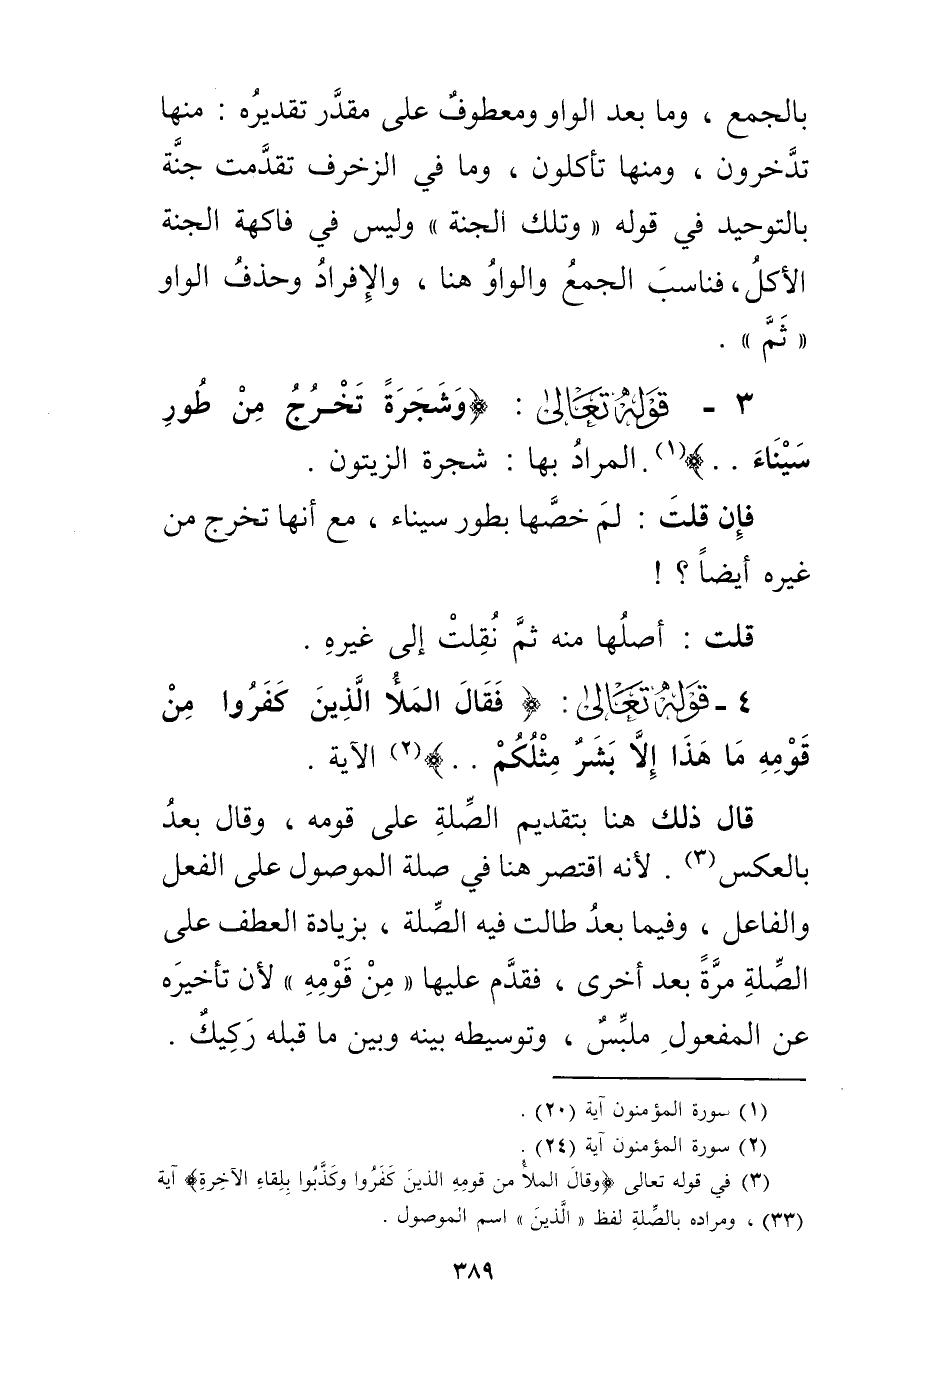 بالجمع ، وما بعد الواو ومعطوفٌ على مقدَّر تقديرُه : منها
تدَّخرون ، ومنها تأكلون ، وما في الزخرف تقدَّمت جنَّة
بالتوحيد في قوله « وتلك الجنة » وليس في فاكهة الجنة
الأكلُ، فناسبَ الجمعُ والواوُ هنا ، والإِفرادُ وحذفُ الواو
« ثَمَّ » .
٣ - قَوْلُهُ تَعَالَى : ﴿وَشَجَرَةً تَخْرُجُ مِنْ طُورِ
سَيْنَاءَ . .﴾(١). المرادُ بها : شجرة الزيتون .
فإِن قلتَ : لمَ خصَّها بطور سيناء ، مع أنها تخرج من
غيره أيضاً ؟ !
قلت : أصلُها منه ثمَّ نُقِلتْ إلى غيرهِ .
٤ - قَوْلُهُ تَعَالَى : ﴿ فَقَالَ المَلأُ الَّذِينَ كَفَرُوا مِنْ
قَوْمِهِ مَا هَذَا إِلَّا بَشَرٌ مِثْلُكُمْ . .﴾(٢) الآية .
قال ذلك هنا بتقديم الصِّلةِ على قومه ، وقال بعدُ
بالعكس(٣) . لأنه اقتصر هنا في صلة الموصول على الفعل
والفاعل ، وفيما بعدُ طالت فيه الصِّلة ، بزيادة العطف على
الصِّلةِ مرَّةً بعد أخرى ، فقدَّم عليها « مِنْ قَوْمِهِ » لأن تأخيرَه
عن المفعولِ ملبِّسٌ ، وتوسيطه بينه وبين ما قبله رَكِيكٌ .
(١) سورة المؤمنون آية (٢٠) .
(٢) سورة المؤمنون آية (٢٤) .
(٣) في قوله تعالى ﴿وقالَ الملأُ من قومِهِ الذينَ كَفَرُوا وكَذَّبُوا بِلِقاءِ الآخِرةِ﴾ آية
(٣٣) ، ومراده بالصِّلةِ لفظ « الَّذينَ » اسم الموصول .
٣٨٩